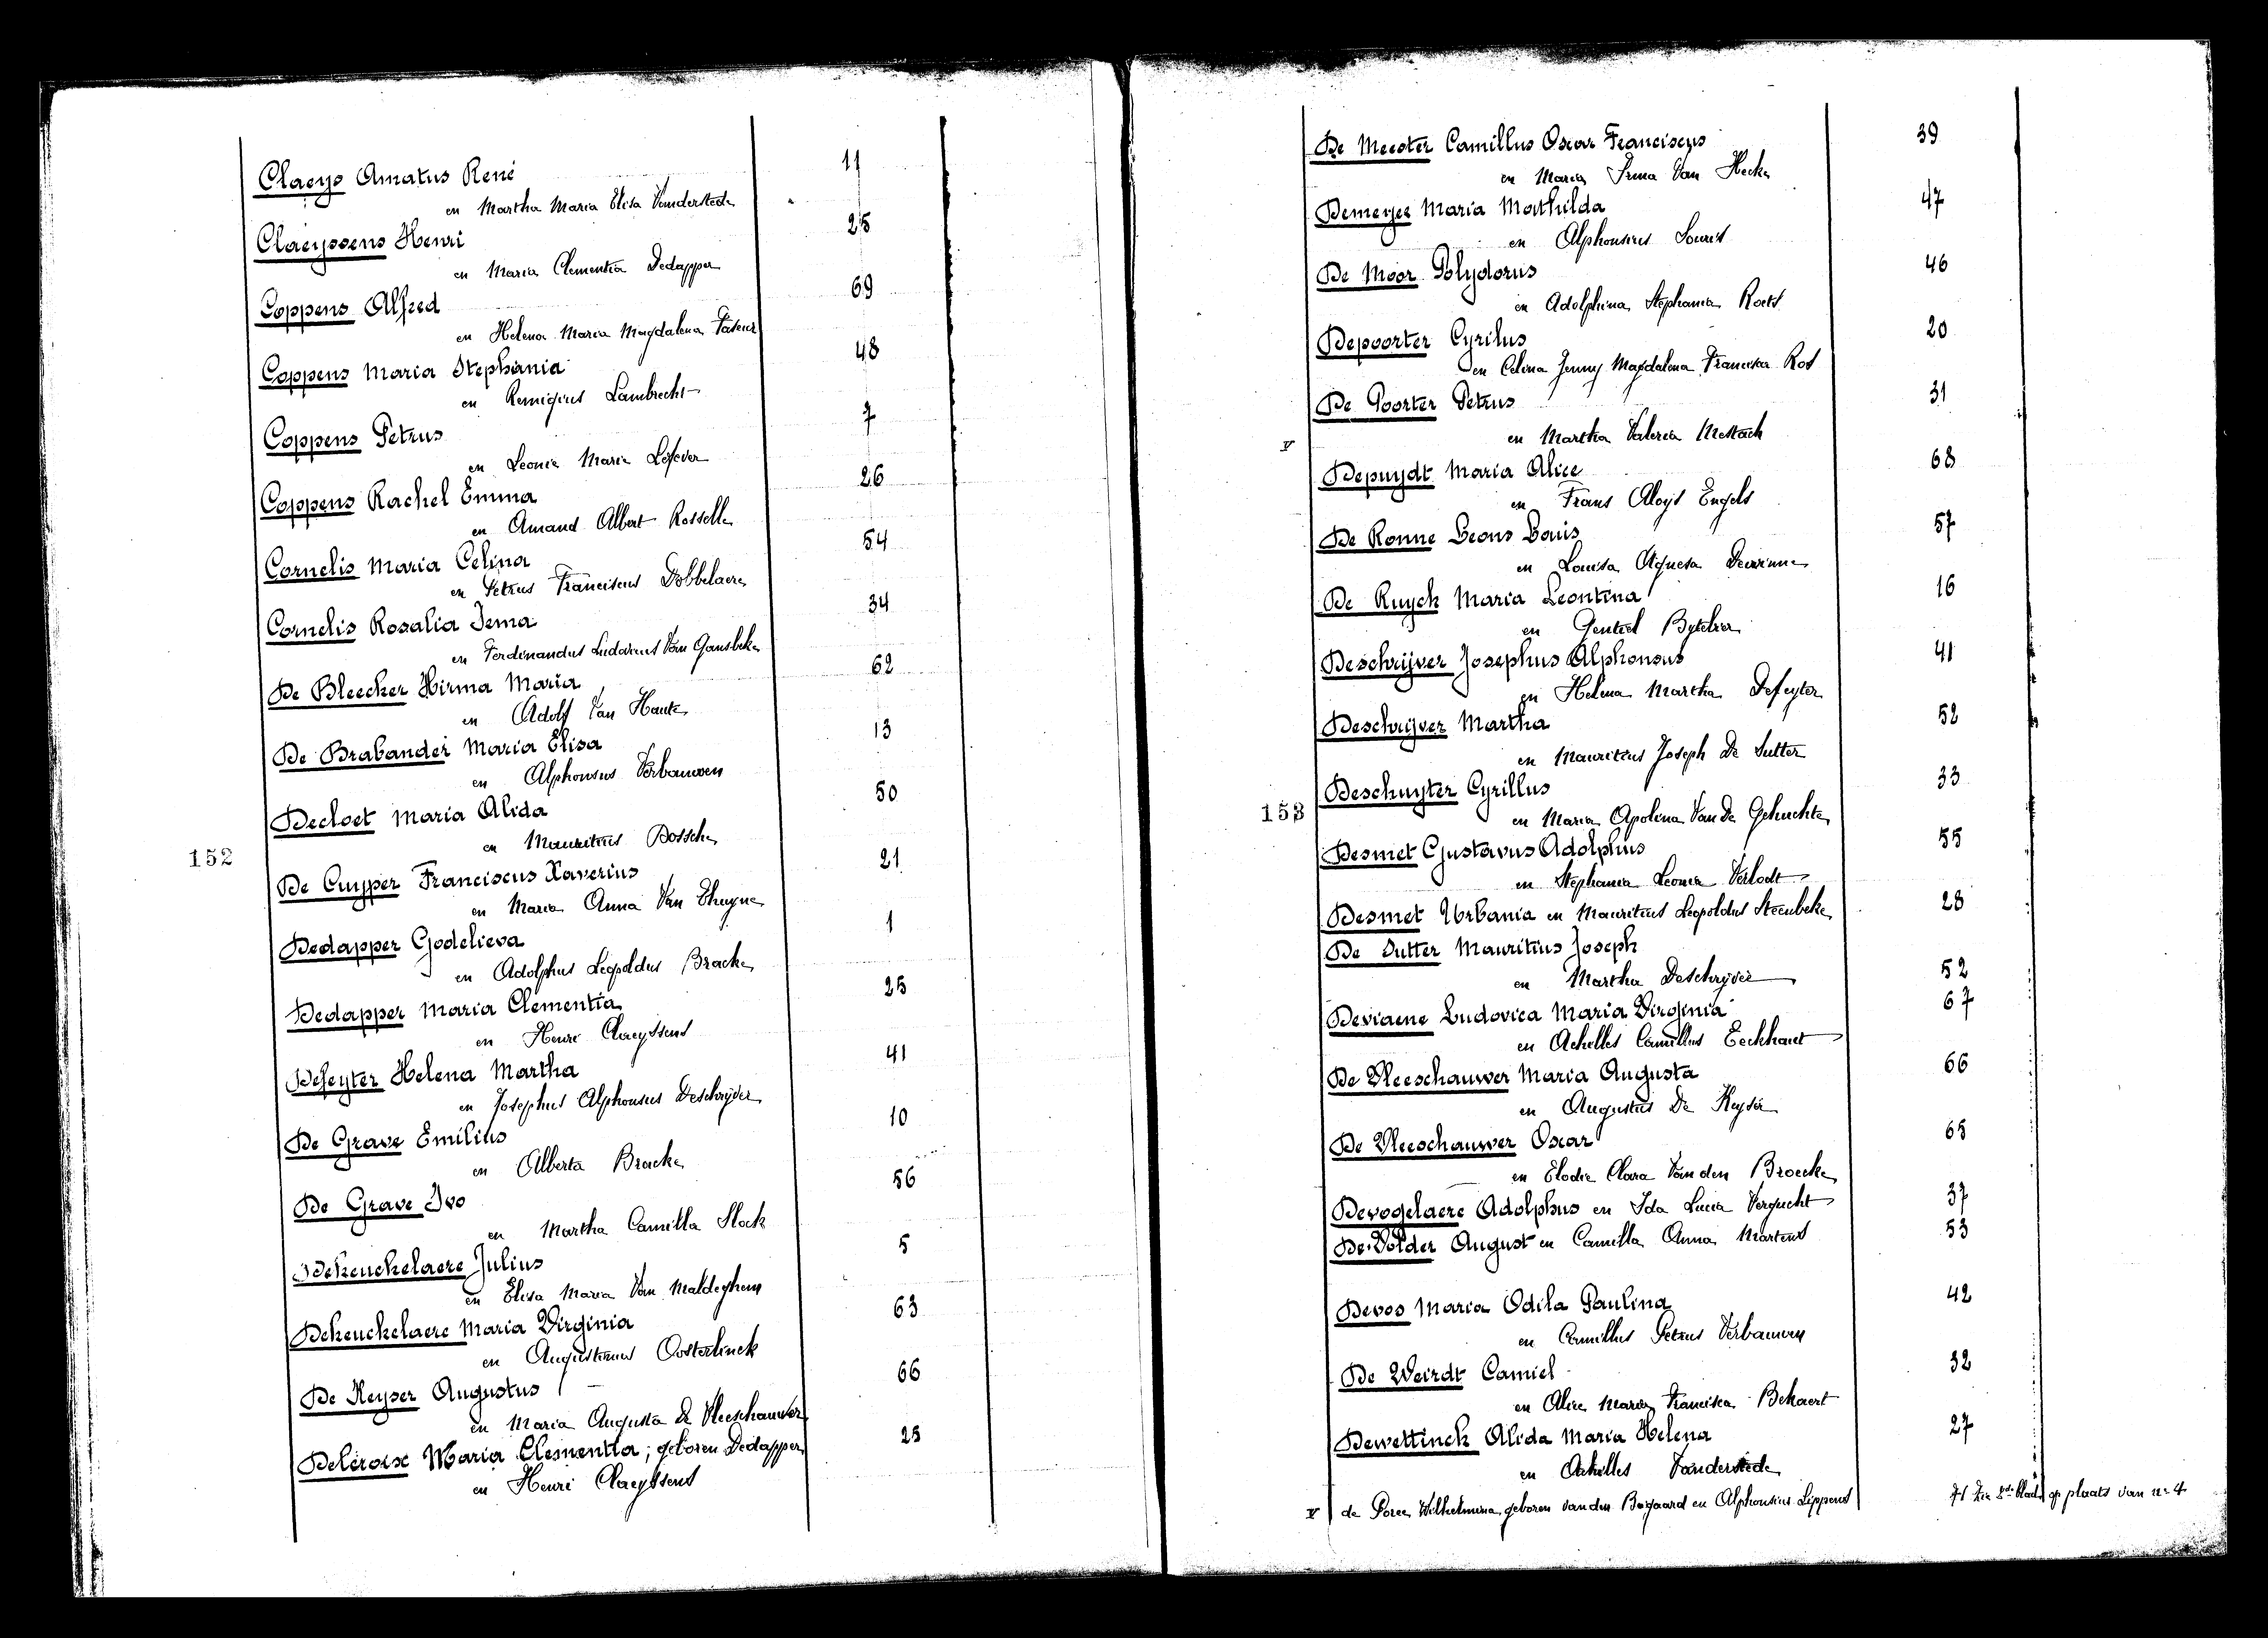 Claeys Amatus René 11
en Martha Maria Elisa Vanderstede
Claeyssens Henri 25
en Maria Clementia Dedapper
Coppens Alfred 69
en Helena Maria Magdalena
Coppens Maria Stephania 48
en Remigius Lambrecht
Coppens Petrus 7
en Leonie Maria Lefever
Coppens Rachel Emma 26
en Amand Albert Rosselle
Cornelis Maria Celina 54
en Petrus Franciscus Dobbelaere
Cornelis Rosalia Irma 34
en Ferdinandus Ludovicus Van Gansbeke
De Bleecker Hirma Maria 62
en Adolf Van Haute
De Brabander Maria Elisa 13
en Alphonsus Verbauwen
Decloet Maria Alida 50
en Mauritius Bossche
152
De Cuyper Franciscus Xaverius 21
en Maria Anna Van Thuyne
Dedapper Godelieva 1
en Adolphus Leopoldus Bracke
Dedapper Maria Clementia 25
en Henri Claeyssens
Defeyter Helena Martha 41
en Josephus Alphonsus Deschrijver
De Grave Emilius 10
en Alberta Bracke
De Grave Ivo 56
en Martha Camilla Slock
Dekeuckelaere Julius 5
en Elisa Maria Van Maldeghem
Dekeuckelaere Maria Virginia 63
en Augustinus Oosterlinck
De Keyser Augustus 66
en Maria Augusta De Vleeschauwer
Deleroix Maria Clementia; geboren Dedapper 25
en Henri Claeyssens
De Meester Camillus Oscar Franciscus 39
en Maria Irma Van Hecke
Demeyer Maria Mathilda 47
en Alphonsius
De Moor Polydorus 46
en Adolphina Stephania Roets
Depoorter Cyrilus 20
en Celina Jenny Magdalena Francisca Rot
De Poorter Petrus 31
en Martha Valeria Mestach
V
Depuydt Maria Alice 68
en Frans Aloys Engels
De Ronne Leons Louis 57
en Louisa Agnesa
De Ruyck Maria Leontina 16
en Gentiel
Deschrijver Josephus Alphonsus 41
en Helena Martha Defeyter
Deschrijver Martha 52
en Mauritius Joseph De Sutter
Deschuyter Cyrillus 33
153
en Maria Apolina Van De Gehuchte
Desmet Gustavus Adolphus 55
en Stephania Leonia Verlodt
Desmet Urbania en Mauritius Leopoldus Steenbeke 28
De Sutter Mauritius Joseph
en Martha Deschrijver 52
Deviaene Ludovica Maria Virginia 67
en Achilles Camillus Eeckhaut
De Vleeschauwer Maria Augusta 66
en Augustus De Keyser
De Vleeschauwer Oscar 65
en Elodie Clara Van den Broecke
Devogelaere Adolphus en Ida Lucia Vergucht 37
De Volder August en Camilla Anna Martens 53
Devos Maria Odila Paulina 42
en Camillus Petrus Verbauwen
De Weirdt Camiel 32
en Alice Maria Francisca Bekaert
Dewettinck Alida Maria Helena 27
en Achilles Vanderstede
V de Poree Wilhelmina geboren van den Bogaard en Alphonsius Lippens 71 Zie blad op plaats van n= 4